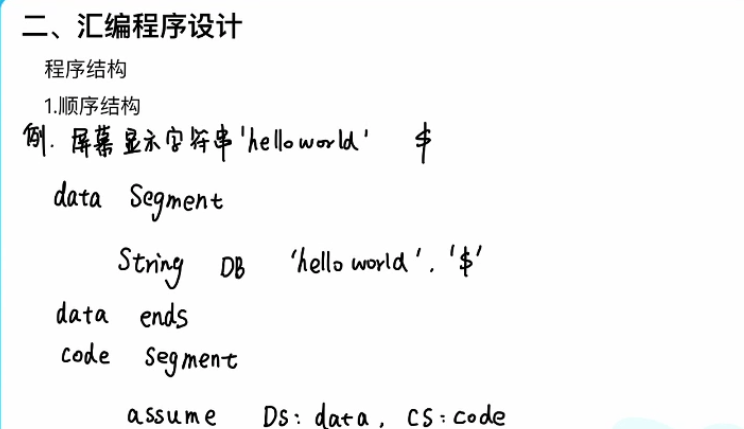 二、汇编程序设计
程序结构
1.顺序结构
例. 屏幕显示字符串'hello world' $
data Segment
String DB 'hello world'. '$'
data ends
code segment
assume DS: data, CS: code